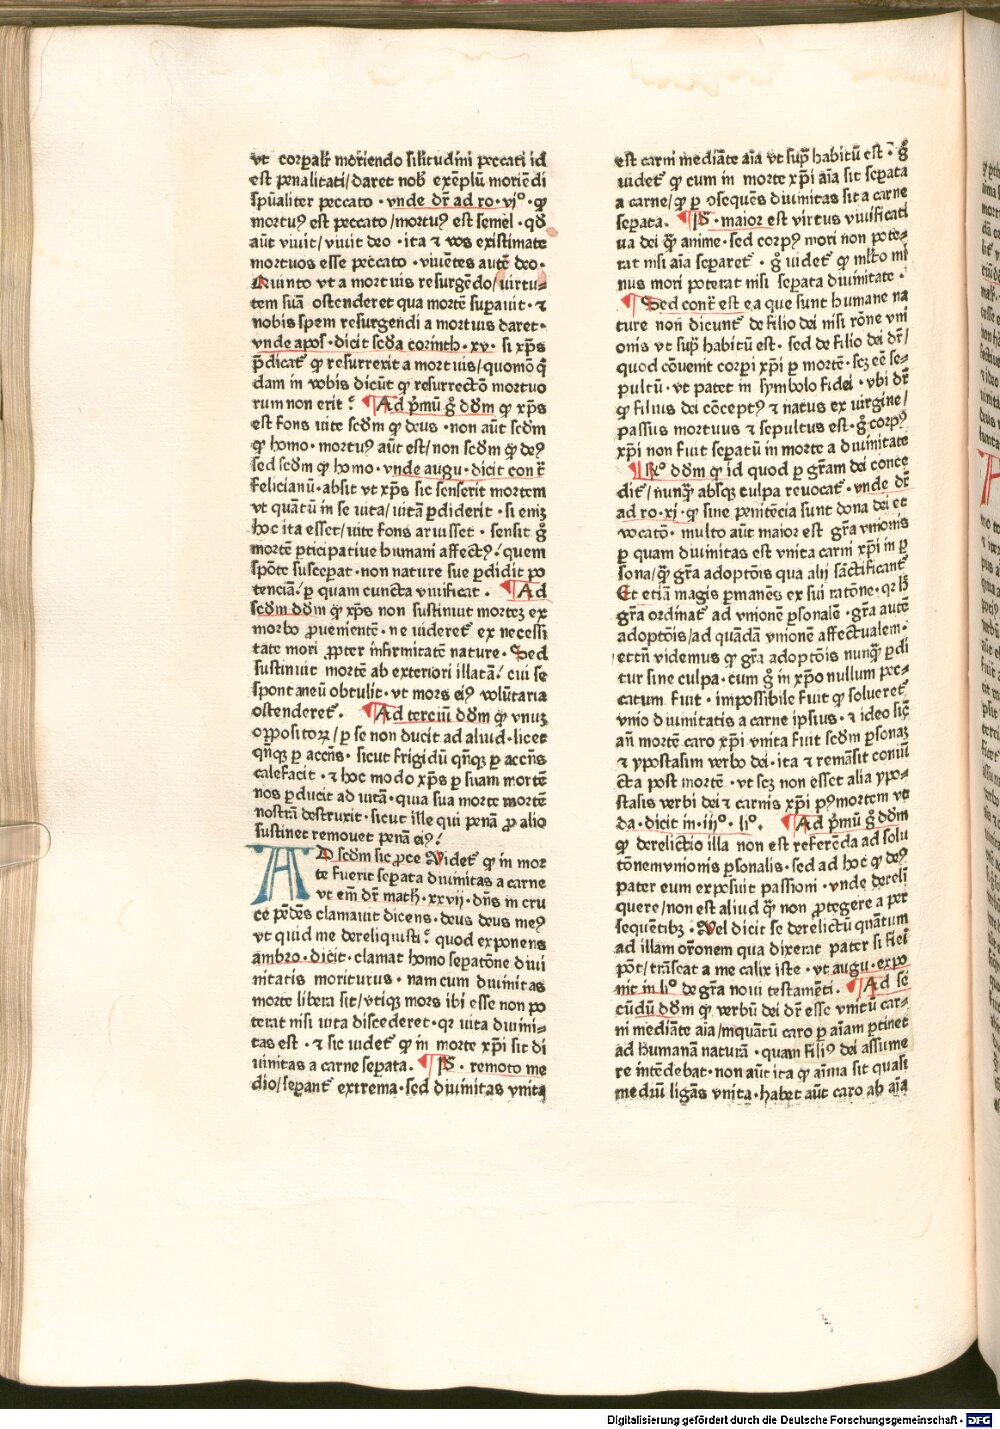 vt corꝑaľr moriendo silitudini peccati id
est penalitati/daret nob̄ exēplū moriēdi
spūaliter peccato · vnde dr̄ ad ro · vjº · ꝙ
mortuꝰ est peccato /mortuꝰ est semel · qđ
aūt viuit/ viuit deo · ita ⁊ vos existimate
mortuos esse peccato · viuētes autē deo·
Quinto vt a mortuis resurgēdo/ virtu⸗
tem suā ostenderet qua mortē suꝑauit · ⁊
nobis spem resurgendi a mortuis daret·
vnde apoſ · dicit scđa corinth · xv · si xp̄s
p̄dicat̄ ꝙ resurrexit a mortuis/ quomō q̄
dam in vobis dicūt ꝙ resurrectō mortuo
rum non erit? ¶ Ad p̄mū g̊ đđm ꝙ xp̄s
est fons uite scđm ꝙ deus · non aūt scđm
ꝙ homo · mortuꝰ aūt est/ non scđm ꝙ deꝰ
sed scđm ꝙ homo · vnde augu · dicit cont̄
felicianū · absit vt xp̄s sic senserit mortem
vt quātū in se vita/ vitā ꝑdiderit · si eniꝫ
hoc ita esset/ uite fons aruisset · sensit g̊
mortē ꝑticipatiue humani affectꝰ/ quem
spōte susceꝑat · non nature sue ꝑdidit po
tenciā/ ꝑ quam cuncta viuificat · ¶ Ad
scđm đđm ꝙ xp̄s non sustinuit morteꝫ ex
morbo ꝓuenientē · ne uideret̄ ex necessi
tate mori ꝓpter infirmitatē nature · Sed
sustinuit mortē ab exteriori illatā/ cui se
spontaneū obtulit · vt mors eiꝰ volūtaria
ostenderet̄ · ¶ Ad terciū đđm ꝙ vnuꝫ
oppositoꝝ / ꝑ se non ducit ad aliud · licet
qn̄qꝫ ꝑ accn̄s · sicut frigidū qn̄qꝫ ꝑ accn̄s
calefacit · ⁊ hoc modo xp̄s ꝑ suam mortē
nos ꝑducit ad uitā · quia sua morte mortē
nostrā destruxit · sicut ille qui penā ꝓ alio
sustinet remouet penā eiꝰ/
AD scđm sic ꝓce Videt̄ ꝙ in mor
te fuerit seꝑata diuinitas a carne
vt em̄ dr̄ math̄ · xxvij · dn̄s in cru
ce pēdēs clamauit dicens · deus deus meꝰ
vt quid me dereliquisti? quod exponens
ambro · dicit · clamat homo seꝑatōne diui
nitatis moriturus · nam cum diuinitas
morte libera sit/ vtiqꝫ mors ibi esse non po
terat nisi uita discederet · qꝛ uita diuini⸗
tas est · ⁊ sic uidet̄ ꝙ in morte xp̄i sit di
uinitas a carne seꝑata. ¶ Pͣ · remoto me
dio/ seꝑant̄ extrema · sed diuinitas vnita
est carni mediāte aīa vt supͣ habitū est · g̊
uidet̄ ꝙ cum in morte xp̄i aīa sit seꝑata
a carne/ ꝙ ꝑ ↄsequēs diuinitas sit a carne
seꝑata. ¶ Pͣ · maior est virtus viuificati
ua dei ꝙ̄ anime · sed corpꝰ mori non pote⸗
rat nisi aīa seꝑaret̄ · g̊ uidet̄ ꝙ mľto mi
nus mori poterat nisi seꝑata diuinitate ·
¶ Sed cont̄ est ea que sunt humane na
ture non dicunt̄ de filio dei nisi rōne vni
onis vt supͣ habitū est · sed de filio dei dr̄/
quod cōuenit corpi xp̄i ꝑ mortē · scꝫ eē se⸗
pultū · vt patet in symbolo fidei · vbi dr̄
ꝙ filius dei cōceptꝰ ⁊ natus ex virgine/
passus mortuus ⁊ sepultus est · g̊ corpꝰ
xp̄i non fuit seꝑatū in morte a diuinitate
¶ Rº đđm ꝙ id quod ꝑ gr̄am dei conce
dit̄/ nunqͣ̄ absqꝫ culpa reuocat̄ · vnde dr̄
ad ro · xj · ꝙ sine penitēcia sunt dona dei et
vocatō · multo aūt maior est gr̄a vnionis
ꝑ quam diuinitas est vnita carni xp̄i in ꝑ
sona/ ꝙ̄ gr̄a adoptōis qua alij sāctificant̄
Et etiā magis ꝑmanēs ex sui ratōne · qꝛ h̄
gr̄a ordinat̄ ad vnionē ꝑsonalē · gr̄a autē
adoptōis/ ad quādā vnionē affectualem ·
et tn̄ videmus ꝙ gr̄a adoptōis nunqͣ̄ ꝑdi
tur sine culpa · cum g̊ in xp̄o nullum pec⸗
catum fuit · impossibile fuit ꝙ solueret̄
vnio diuinitatis a carne ipsius · ⁊ ideo sic̄
an̄ mortē caro xp̄i vnita fuit scđm ꝑsonaꝫ
⁊ ypostasim verbo dei · ita ⁊ remāsit coniū
cta post mortē · vt scꝫ non esset alia ypo⸗
stasis verbi dei ⁊ carnis xp̄i pꝰ mortem vt
da · dicit in · iijº · liº. ¶ Ad p̄mū g̊ đđm
ꝙ derelictio illa non est referēda ad solu
tōnem vnionis ꝑsonalis · sed ad hoc ꝙ deꝰ
pater eum exposuit passioni · vnde dereli
quere/ non est aliud ꝙ̄ non ꝓtegere a per
sequētibꝫ · Vel dicit se derelictū quātum
ad illam orōnem qua dixerat pater si fieri
pōt/ trāseat a me calix iste · vt augu · expo
nit in liº de gr̄a noui testamēti. ¶ Ad se
cūdū đđm ꝙ verbū dei dr̄ esse vnitū car⸗
ni mediāte aīa/ inquātū caro ꝑ aīam ꝑtinet
ad humanā naturā · quam filiꝰ dei assume
re intēdebat · non aūt ita ꝙ aīma sit quasi
mediū ligās vnita · habet aūt caro ab aīa
Digitalisierung gefördert durch die Deutsche Forschungsgemeinschaft - DFG